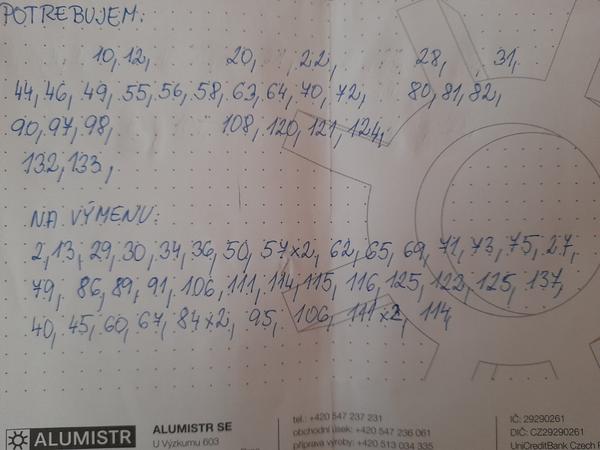 POTREBUJEM:
10, 12, 20, 22, 28, 31,
44, 46, 49, 55, 56, 58, 63, 64, 70, 72, 80, 81, 82,
90, 97, 98, 108, 120, 121, 124,
132, 133,
NA VÝMENU:
2, 13, 29, 30, 34, 36, 50, 57×2, 62, 65, 69, 71, 73, 75, 27,
79, 86, 89, 91, 106, 111, 114, 115, 116, 125, 122, 125, 137,
40, 45, 60, 67, 84×2, 95, 106, 111×2, 114,
ALUMISTR
ALUMISTR SE
U Výzkumu 603
tel.: +420 547 237 231
obchodní úsek: +420 547 236 061
příprava výroby: +420 513 034 335
IČ: 29290261
DIČ: CZ29290261
UniCreditBank Czech